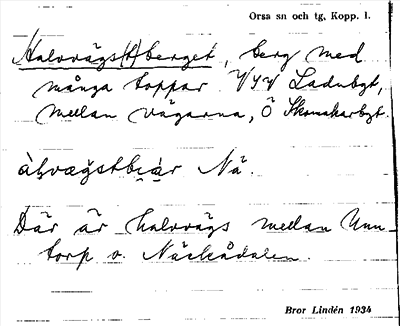 Orsa sn och tg, Kopp. l.
Halvvägs(t)berget, berg med
många toppar VSV Ladubgt,
mellan vägarna, Ö Skomakarbgt.
àḷvægstbi̯är Nä.
Där är halvvägs mellan Unn-
torp o. Näckådalen.
Bror Lindén 1934